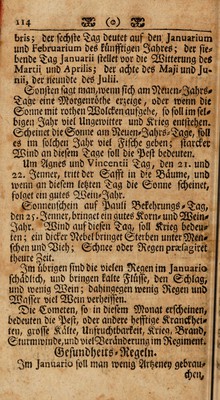 114 (o)
bris; der sechste Tag deutet auf den Januarium
und Februarium des künfftigen Jahres; der sie-
bende Tag Januarii stellet vor die Witterung des
Martii und Aprilis; der achte des Maji und Ju-
nii, der neundte des Julii.
Sonsten sagt man, wenn sich am Neuen-Jahrs-
Tage eine Morgenröthe erzeige, oder wenn die
Sonne mit rothen Wolcken aufgehe, so soll im sel-
bigen Jahr viel Ungewitter und Krieg entstehen.
Scheinet die Sonne am Neuen-Jahrs-Tage, soll
es im solchen Jahr viel Fische geben; starcker
Wind an diesem Tage soll die Pest bedeuten.
Um Agnes und Vincentii Tag, den 21. und
22. Jenner, tritt der Safft in die Bäume, und
wenn an diesem letzten Tag die Sonne scheinet,
folget ein gutes Wein-Jahr.
Sonnenschein auf Pauli Bekehrungs-Tag,
den 25. Jenner, bringet ein gutes Korn- und Wein-
Jahr. Wind auf diesen Tag, soll Krieg bedeu-
ten; ein dicker Nebel bringet Sterben unter Men-
schen und Vieh; Schnee oder Regen præsagiret
heute Zeit.
Im übrigen sind die vielen Regen im Januario
schädlich, und bringen kalte Flüsse, den Schlag,
und wenig Wein; dahingegen wenig Regen und
Wasser viel Wein verheissen.
Die Cometen, so in diesem Monat erscheinen,
bedeuten die Pest, oder andere hefftige Kranckhei-
ten, grosse Kälte, Unfruchtbarkeit, Krieg, Brand,
Sturmwinde, und viel Veränderung im Regiment.
Gesundheits-Regeln.
Im Januario soll man wenig Artzeney gebrau-
chen,